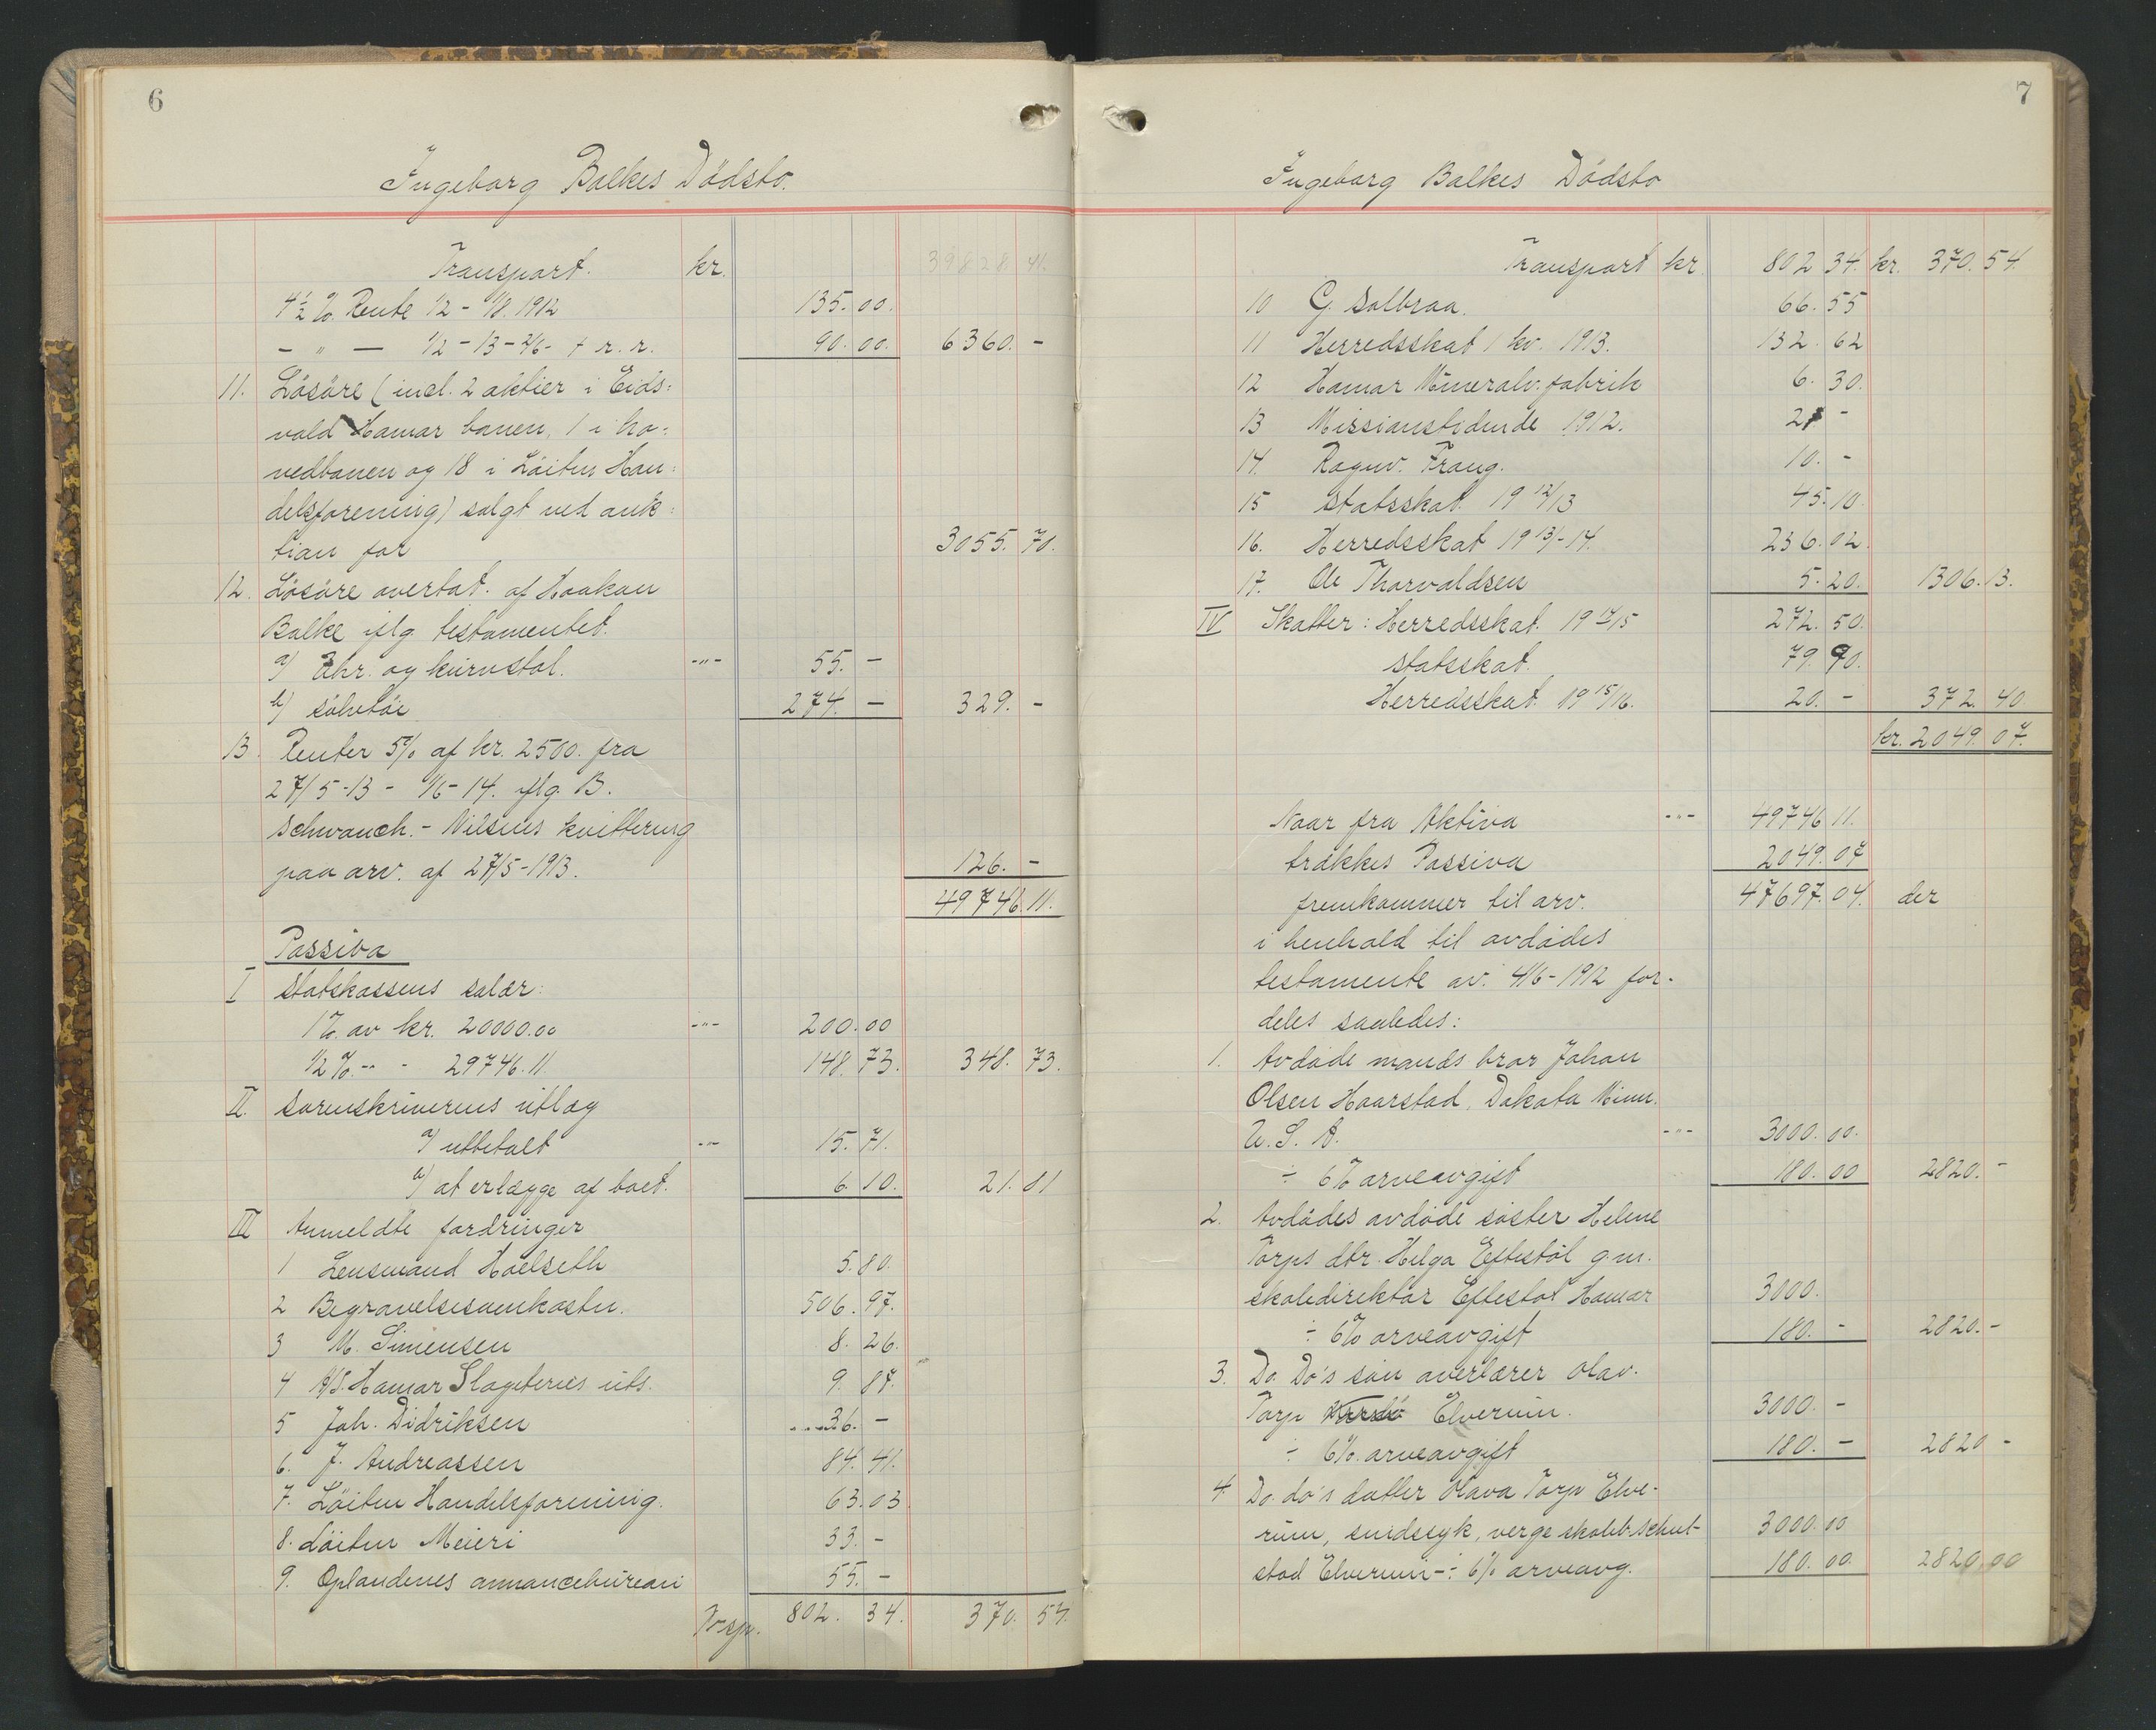 6
Ingeborg Balkes Dödsbo.
Transport. kr. 39828.41.
4½% Rente ½ - 1/8. 1912 135.00.
- " - ½ - 13 - 2/6 - + r. r. 90.00. 6360. -
11. Lösöre (incl. 2 aktier i Eids:
vold Hamar banen, 1 i ho:
vedbanen og 18 i Löiten Han:
delsforening) solgt ved auk:
tion for 3055.70.
12. Lösöre overtat. af Haakon
Balke iflg. testamentet.
a) Uhr. og kurvstol. -"- 55. -
b) sölvtöi 274. - 329. -
13. Renter 5% af kr. 2500. fra
27/5-13 - 1/6-14. iflg. B.
Schwanch.- Nilsens kvittering
paa arv. af 27/5-1913. 126. -
49746.11.
Passiva
I Statskassens salær:
1% av kr. 20000.00 -"- 200.00
1/2 % -"- - 29746.11. 148.73. 348.73.
II. Sorenskriverens utlæg
a) utbetalt -"- 15.71.
b) at erlægge af boet. 6.10. 21.81
III Anmeldte fordringer
1 Lensmand Hoelseth 5.80.
2 Begravelsesomkostn. 506.97.
3 M. Simensen 8.26.
4 A/S. Hamar Slagteries uts. 9.87.
5 Joh. Didriksen 36. -
6. J. Andreassen 84.41.
7. Löiten Handelsforening. 63.03
8. Löiten Meieri 33. -
9. Oplandenes annoncebureau 55. -
Trsp. 802.34. 370.54.
7
Ingeborg Balkes Dödsbo
Transport kr. 802.34. kr. 370.54.
10 G. Solbraa. 66.55
11 Herredsskat 1 kv. 1913. 132.62
12 Hamar Mineralv. fabrik 6.30.
13 Missionstidende 1912. 2 -
14. Ragnv. Frang. 10. -
15 Statsskat 19 12/13 45.10
16. Herredsskat 19 13/-14. 236.02.
17. Ole Thorvaldsen 5.20. 1306.13.
IV Skatter: Herredsskat. 19 14/15 272.50.
Statsskat. 79.90.
Herredsskat 19 15/16. 20. - 372.40
kr. 2049.07.
Naar fra Aktiva -"- 49746.11.
trækkes Passiva 2049.07
fremkommer til arv. 47697.04. der
i henhold til avdödes
testamente av. 4/6-1912 for-
deles saaledes:
1. Avdöde mands bror Johan
Olsen Haarstad, Dakota Minn.
U. S. A. -"- 3000.00.
÷ 6% arveavgift 180.00 2820. -
2. Avdödes avdöde söster Helene
Torps dtr. Helga Eftestöl g.m.
skoledirektör Eftestöl Hamar 3000.
÷ 6% arveavgift 180. - 2820. -
3. Do. Do's sön overlærer Olav.
Torp Elverum. 3000. -
÷ 6% arveavgift 180. - 2820 -
4. Do. do's datter Olava Torp Elve-
rum, sindssyk, verge skoleb. Schul-
stad Elverum ÷ 6% arveavg. 3000.00
180.00. 2820.00